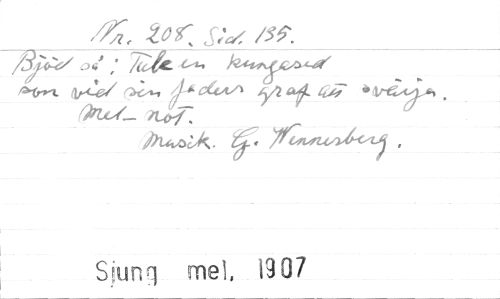 Nr. 208. Sid. 135.
Bjöd så: Tule en kungased
son vid sin faders graf att svärja.
Mel- not.
Musik. G. Wennerberg.
Sjung mel. 1907